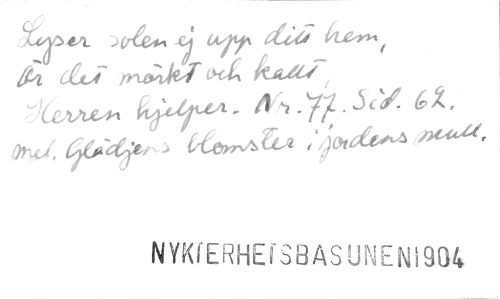 Lyser solen ej upp ditt hem,
är det mörkt och kallt,
Herren hjelper. Nr. 77. Sid. 62.
mel. Glädjens blomster i jordens mull.
NYKTERHETSBASUNEN 1904